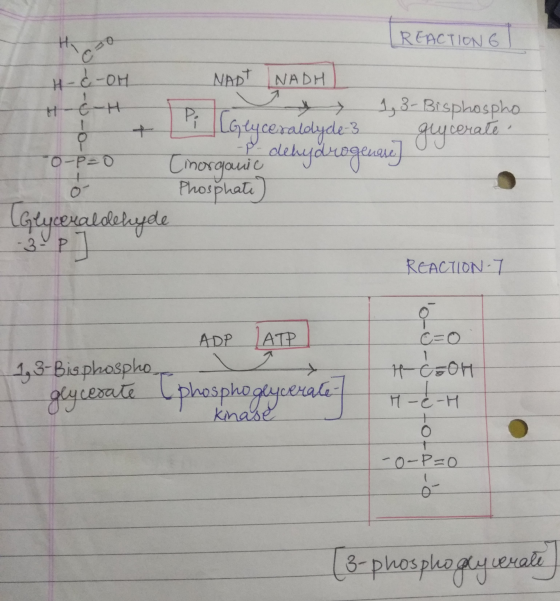 REACTION 6
H O
C
H-C-OH
H-C-H
O
-O-P=O
O-
+
Pi
NAD+ NADH
[Glyceraldyde-3
-P- dehydrogenase]
1,3-Bisphospho
glycerate.
[inorganic
Phosphate]
[Glyceraldehyde
-3- P]
REACTION-7
1,3-Bisphospho
glycerate
ADP ATP
[phosphoglycerate-
kinase]
O-
C=O
H-C=OH
H-C-H
O
-O-P=O
O-
[3-phosphoglycerate]